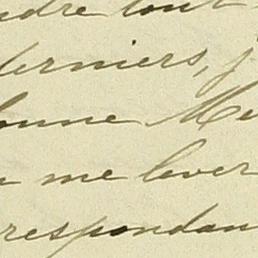 ndre tout
derniers, j'
onne Me
me lever
respondan